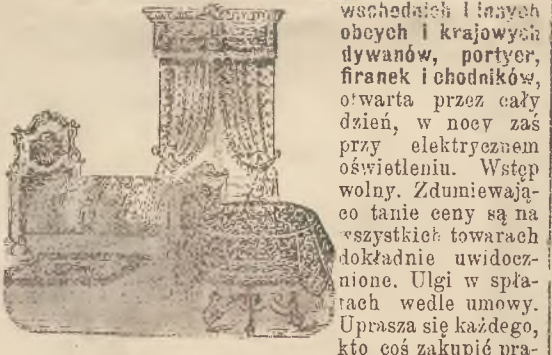 wschodnich i innych
obcych i krajowych
dywanów, portyer,
firanek i chodników,
otwarta przez cały
dzień, w nocy zaś
przy elektrycznem
oświetleniu. Wstęp
wolny. Zdumiewają-
co tanie ceny są na
wszystkich towarach
dokładnie uwidocz-
nione. Ulgi w spła-
tach wedle umowy.
Uprasza się każdego,
kto coś zakupić pra-